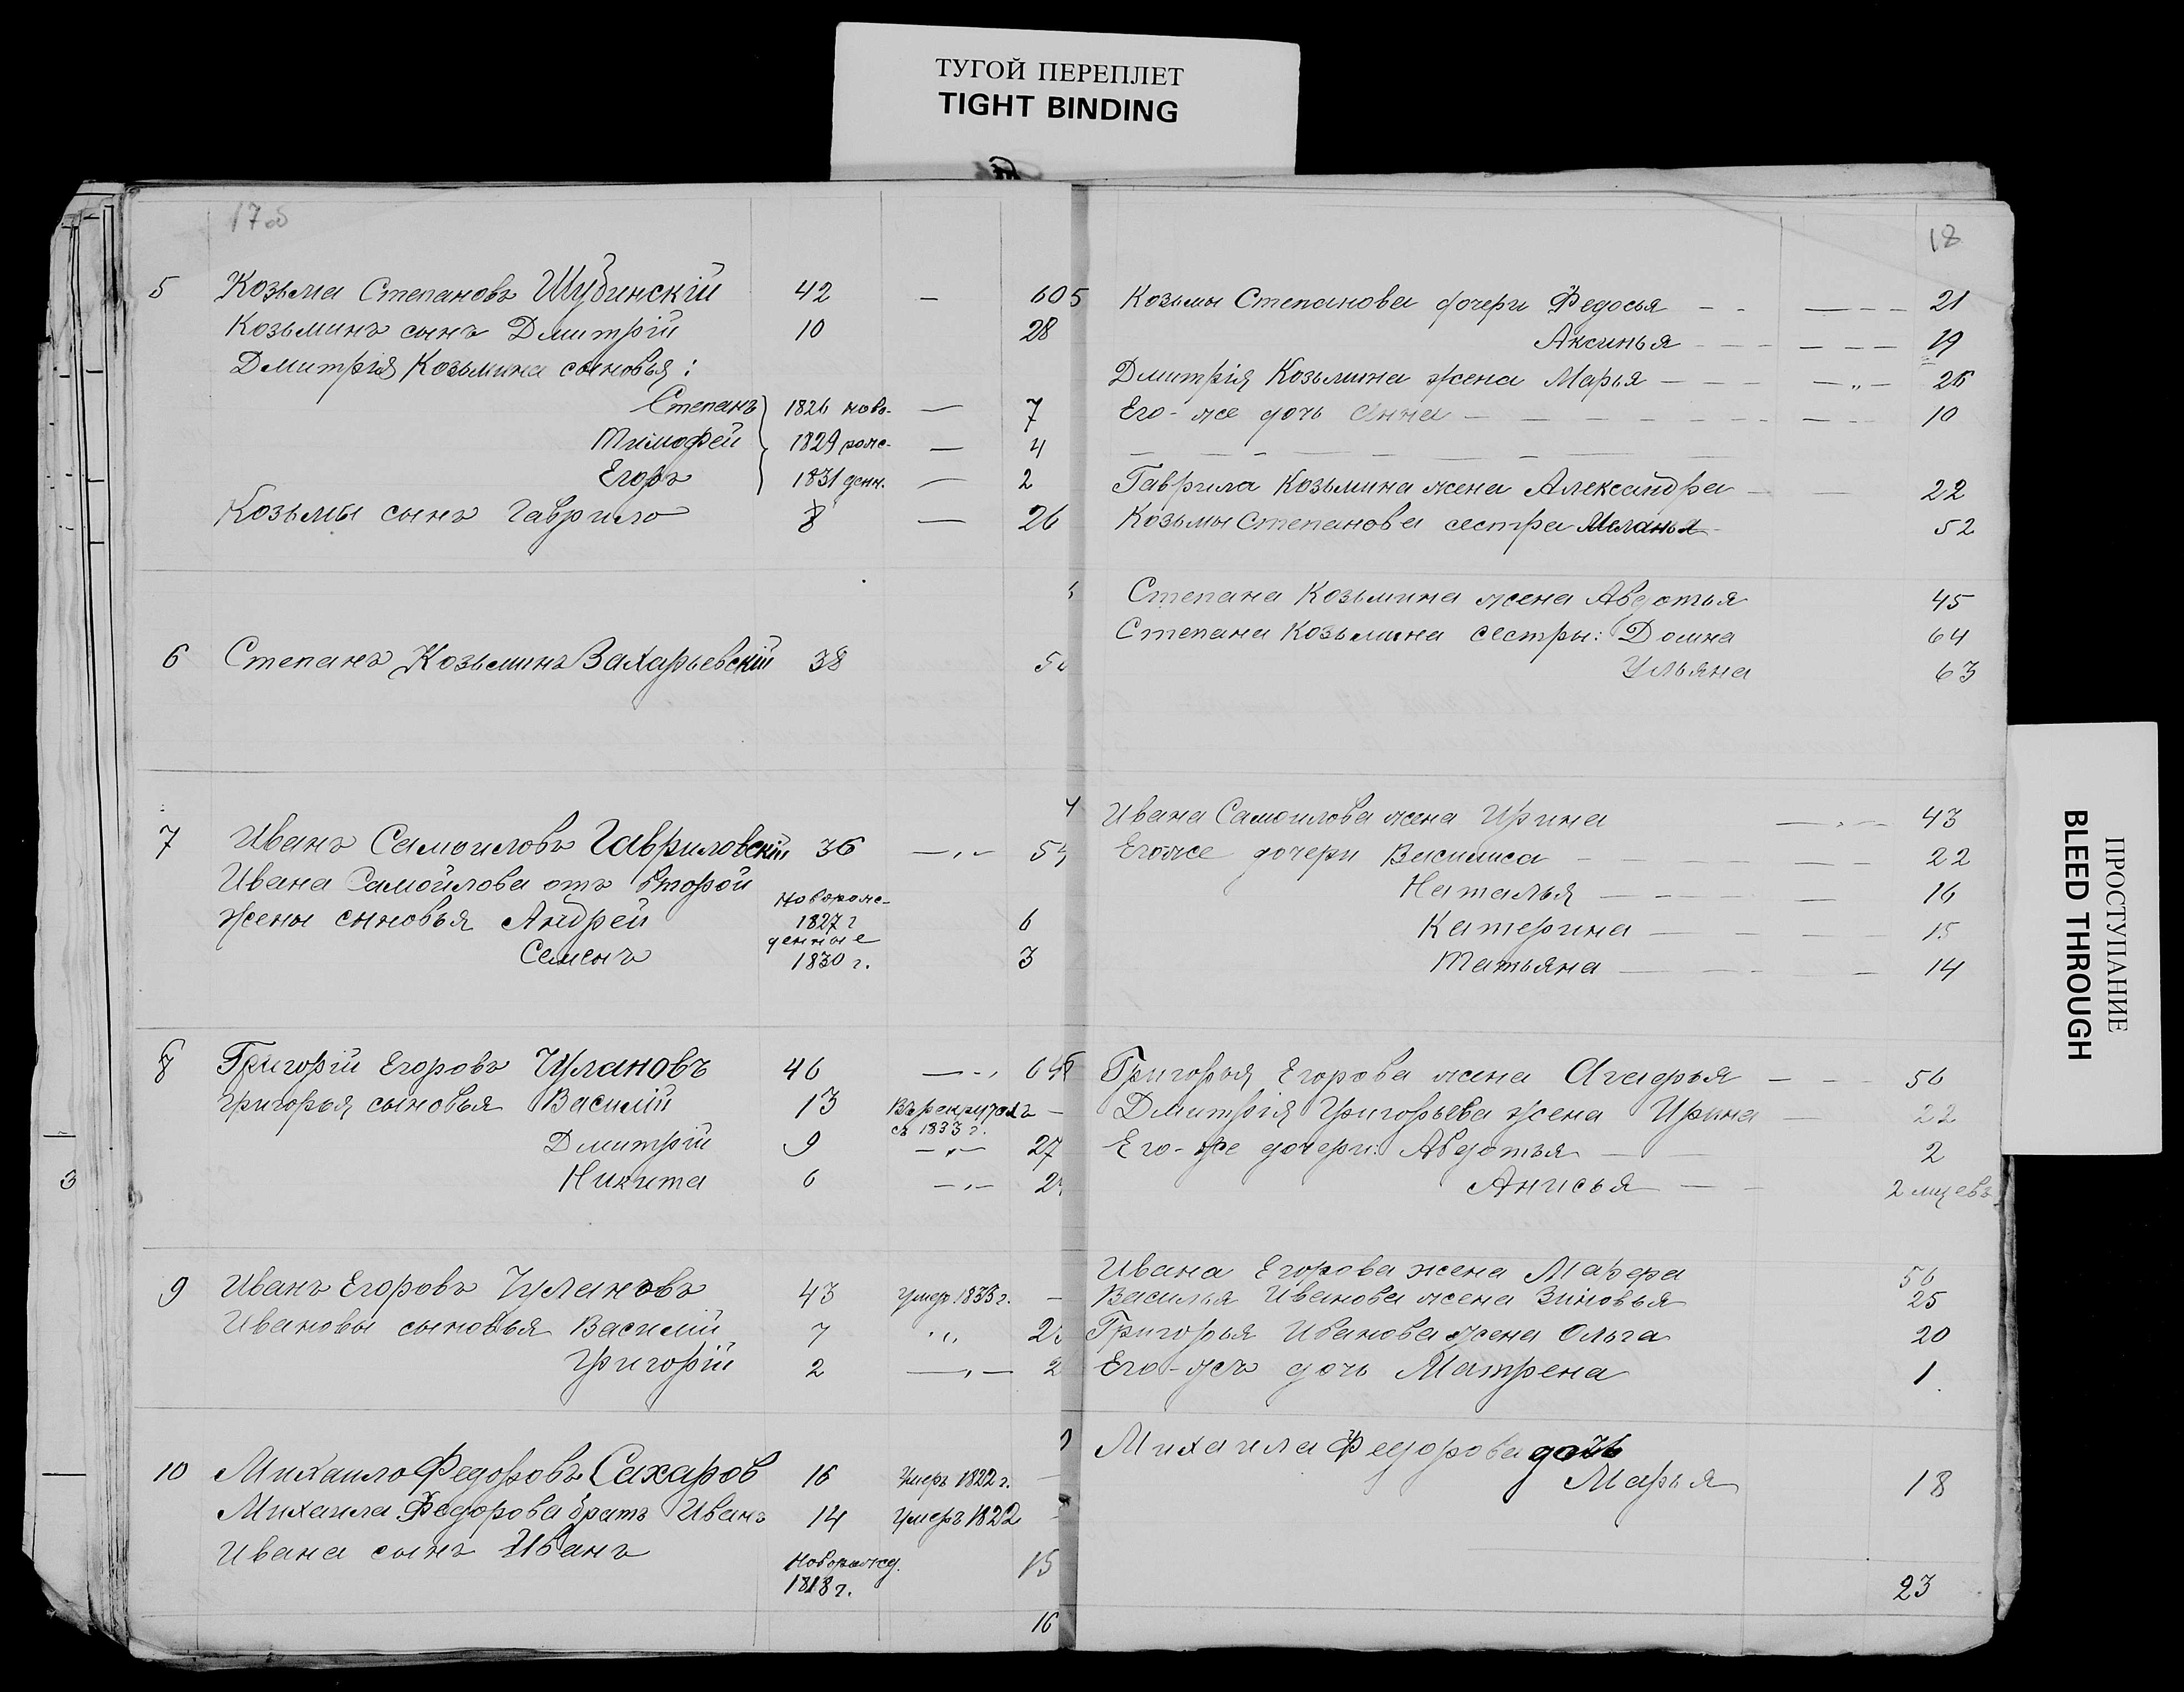 ТУГОЙ ПЕРЕПЛЕТ
TIGHT BINDING
17об
5 Козьма Степановъ Шубинскій 42 — 60
Козьминъ сынъ Дмитрій 10 28
Дмитрія Козьмина сыновья:
Степанъ 1826 ново- — 7
Тимофей 1829 рож- — 4
Егоръ 1831 денн. — 2
Козьмы сынъ Гаврило 8 — 26
6 Степанъ Козьминъ Захарьевскій 38
7 Иванъ Самоиловъ Гавриловскій 36 —„—
Ивана Самойлова отъ второй
Новорож-
жены сыновья Андрей 1827 г 6
денные
Семенъ 1830 г. 3
8 Григорій Егоровъ Чулановъ 46 —„ 64
Григорья сыновья Василій 13 Въ рекрутахъ —
съ 1833 г.
Дмитрій 9 —„— 27
Никита 6 —„—
9 Иванъ Егоровъ Чулановъ 43 умер. 1833 г. —
Ивановы сыновья Василій 7 „
Григорій 2 —„—
10 Михаило Федоровъ Сахаров 16 Умеръ 1822 г. —
Михаила Федорова братъ Иванъ 14 Умеръ 1822
Ивана сынъ Иванъ Новорожд. 15
1818 г.
16
3
18
5 Козьмы Степанова дочери Федосья — — 21
Аксинья — — 19
Дмитрія Козьмина жена Марья — —„— 26
Его-же дочь Анна — — 10
Гаврила Козьмина жена Александра — — 22
Козьмы Степанова сестра Меланья 52
Степана Козьмина жена Авдотья 45
Степана Козьмина сестры: Домна 64
Ульяна 63
Ивана Самоилова жена Ирина — 43
Егоже дочери Василиса — — 22
Наталья — — 16
Катерина — — 15
Татьяна — — 14
Григорья Егорова жена Агафья — 56
Дмитрія Григорьева жена Ирина — 22
Его-же дочери: Авдотья — 2
Анисья — 2 мцевъ
Ивана Егорова жена Марфа 56
Василья Иванова жена Зиновья 25
Григорья Иванова жена Ольга 20
Его-же дочь Матрена 1
Михаила Федорова дочь
Марья 18
23
ПРОСТУПАНИЕ
BLEED THROUGH